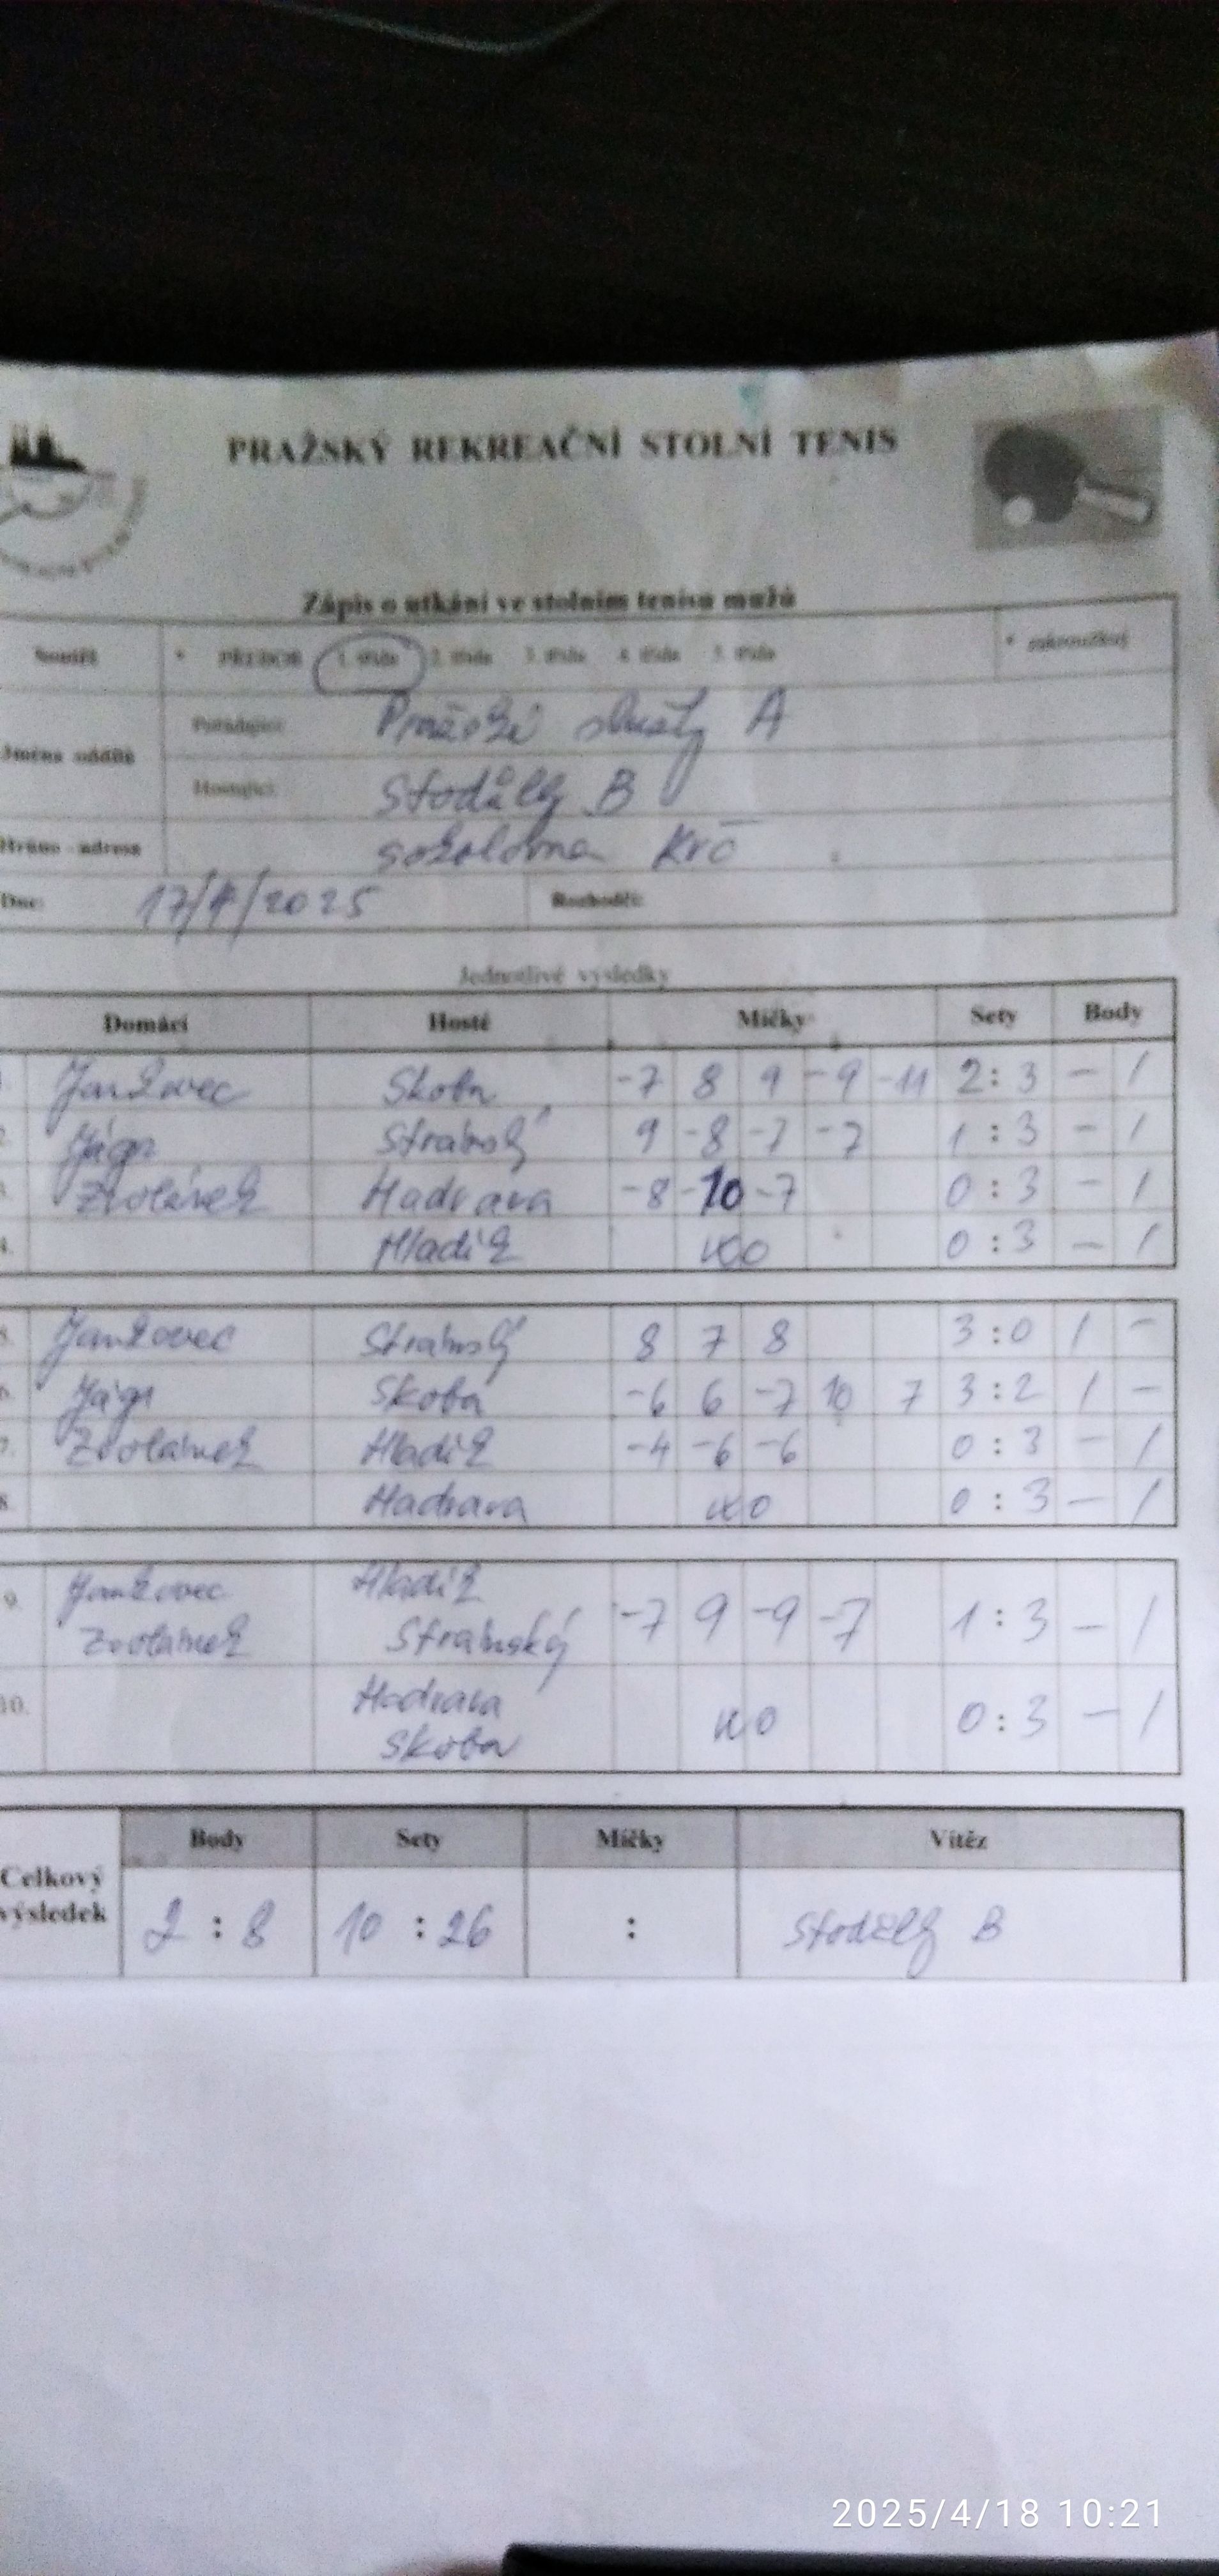 PRAŽSKÝ REKREAČNÍ STOLNÍ TENIS
Zápis o utkání ve stolním tenisu mužů
Soutěž * PŘEBOR 1. třída 2. třída 3. třída 4. třída 5. třída * zakroužkuj
Jména oddílů
Pořádající: Pražské A
Hostující: Stodůlky B
Hráno - adresa sokolovna Krč
Dne: 17/4/2025 Rozhodčí:
Jednotlivé výsledky
Domácí Hosté Míčky Sety Body
Jankovec Skoba -7 8 9 -9 -11 2:3 - 1
2. Jágr Stránský 9 -8 -7 -7 1:3 - 1
Zvolánek Hadrava -8 -10 -7 0:3 - 1
4. Hladík wo 0:3 - 1
5. Jankovec Stránský 8 7 8 3:0 1 -
6. Jágr Skoba -6 6 -7 10 7 3:2 1 -
7. Zvolánek Hladík -4 -6 -6 0:3 - 1
8. Hadrava wo 0:3 - 1
9. Jankovec Hladík -7 9 -9 -7 1:3 - 1
Zvolánek Stránský
10. Hadrava wo 0:3 - 1
Skoba
Body Sety Míčky Vítěz
Celkový výsledek 2:8 10:26 : Stodůlky B
2025/4/18 10:21